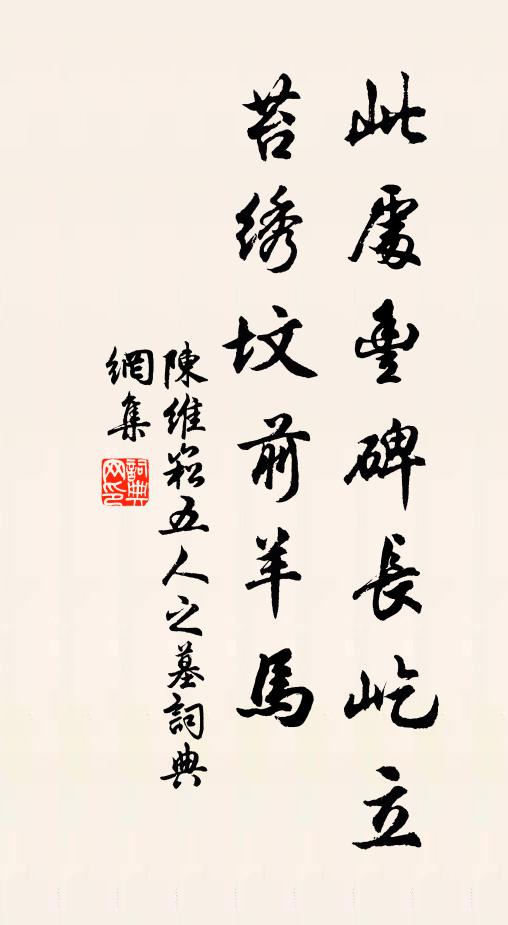 此處豊碑長屹立
苔綉坟前羊馬
陳維崧五人之墓詞典
網集
詞典网印